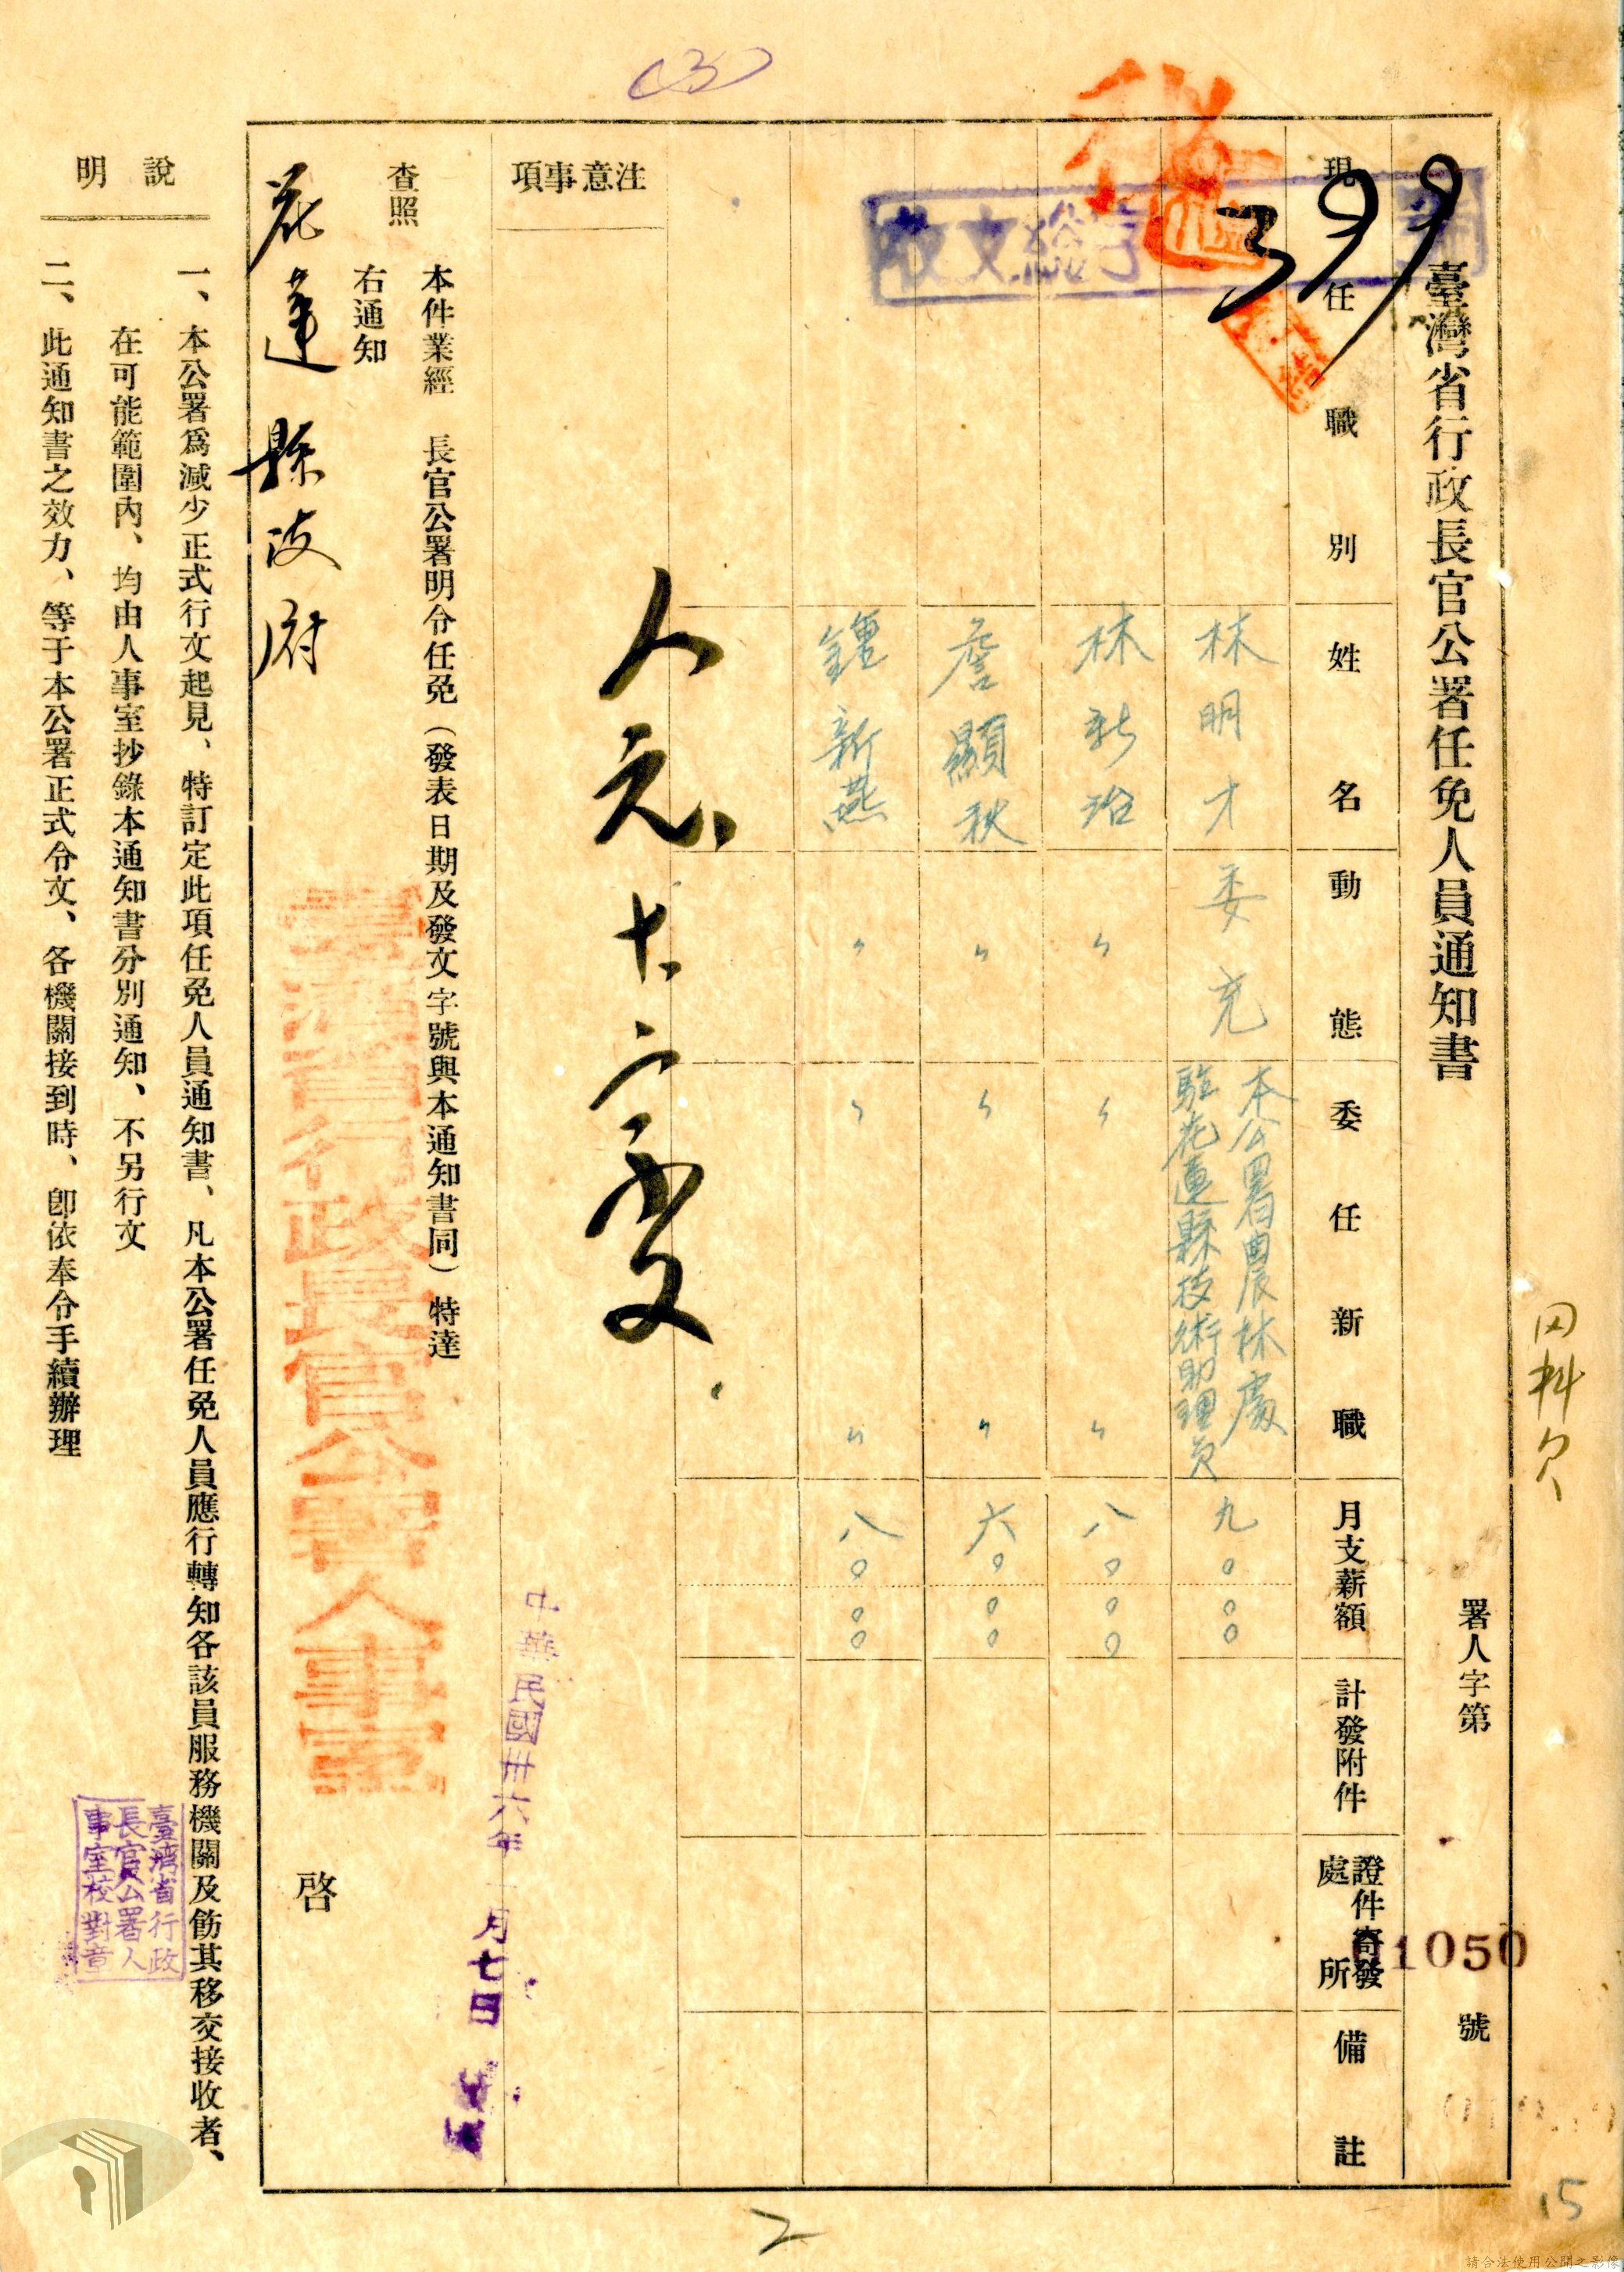 臺灣省行政長官公署任免人員通知書
署人字第
01050
號
399
現任職別
姓名
動態
委任新職
月支薪額
計發附件
證件寄發處所
備註
林明才
委充
本公署農林處
駐花蓮縣技術助理員
九〇〇〇
林新
〃
〃
〃
八〇〇〇
詹顯秋
〃
〃
〃
六〇〇〇
鍾新燕
〃
〃
〃
八〇〇〇
注意事項
中華民國卅六年
月七日
本件業經 長官公署明令任免(發表日期及發文字號與本通知書同)特達
查照
右通知
花蓮縣政府
臺灣省行政長官公署人事室
啓
說明
一、本公署爲減少正式行文起見、特訂定此項任免人員通知書、凡本公署任免人員應行轉知各該員服務機關及飭其移交接收者、
在可能範圍內、均由人事室抄錄本通知書分別通知、不另行文
二、此通知書之效力、等于本公署正式令文、各機關接到時、卽依奉令手續辦理
臺灣省行政
長官公署人
事室校對章
2
15
請合法使用公開之影像